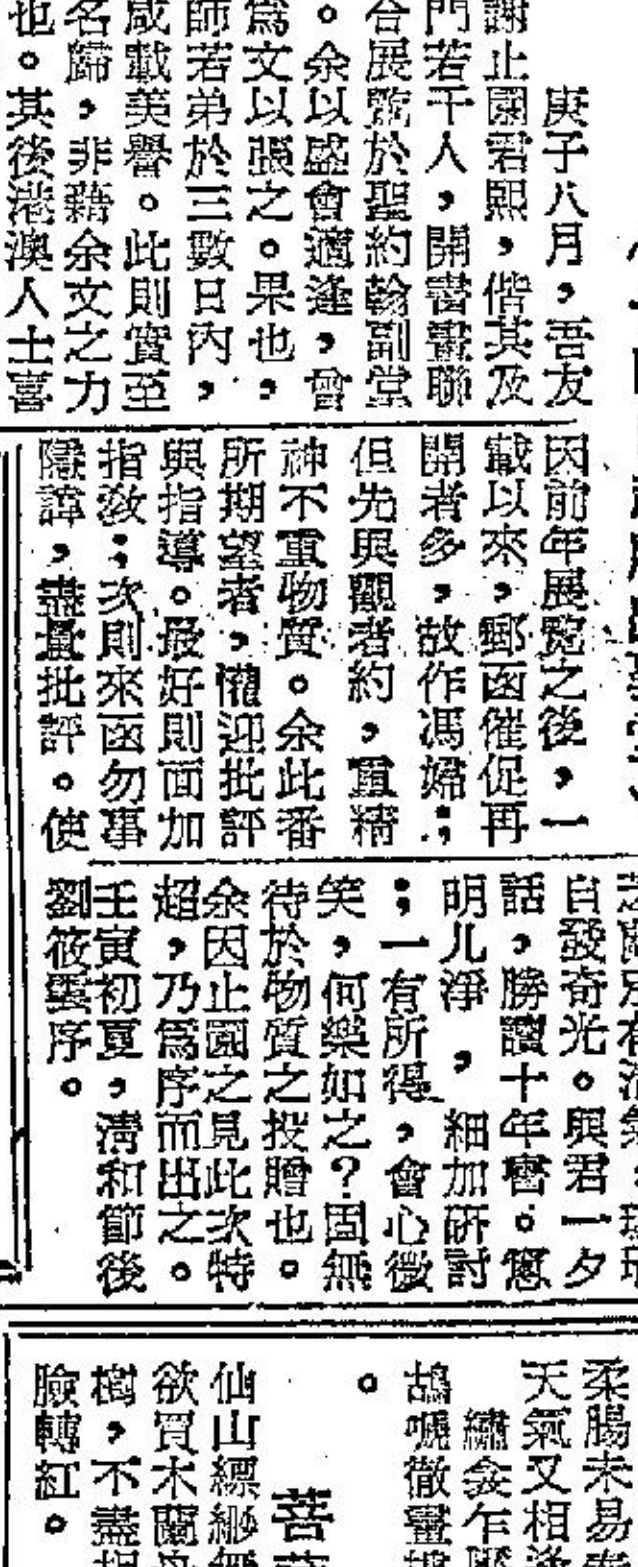 庚子八月，吾友
謝止園君熙，偕其及
門若干人，開書畫聯
合展覽於聖約翰副堂
。余以盛會適逢，曾
為文以張之。果也，
師若弟於三數日內，
咸載美譽。此則實至
名歸，非藉余文之力
也。其後港澳人士喜
因前年展覽之後，一
載以來，郵函催促再
開者多，故作馮婦；
但先與觀者約，重精
神不重物質。余此番
所期望者，懽迎批評
與指導。最好則面加
指教；次則來函勿事
隱諱，盡量批評。使
自發奇光。與君一夕
話，勝讀十年書。窗
明几淨，細加研討
；一有所得，會心微
笑，何樂如之？固無
待於物質之投贈也。
余因止園之見此次特
超，乃為序而出之。
壬寅初夏，清和節後
劉筱雲序。
柔腸未易
天氣又相逢
繡衾乍
鴣嗁徹畫
。
菩
仙山縹緲無
欲買木蘭舟
樹，不盡相
臉轉紅。